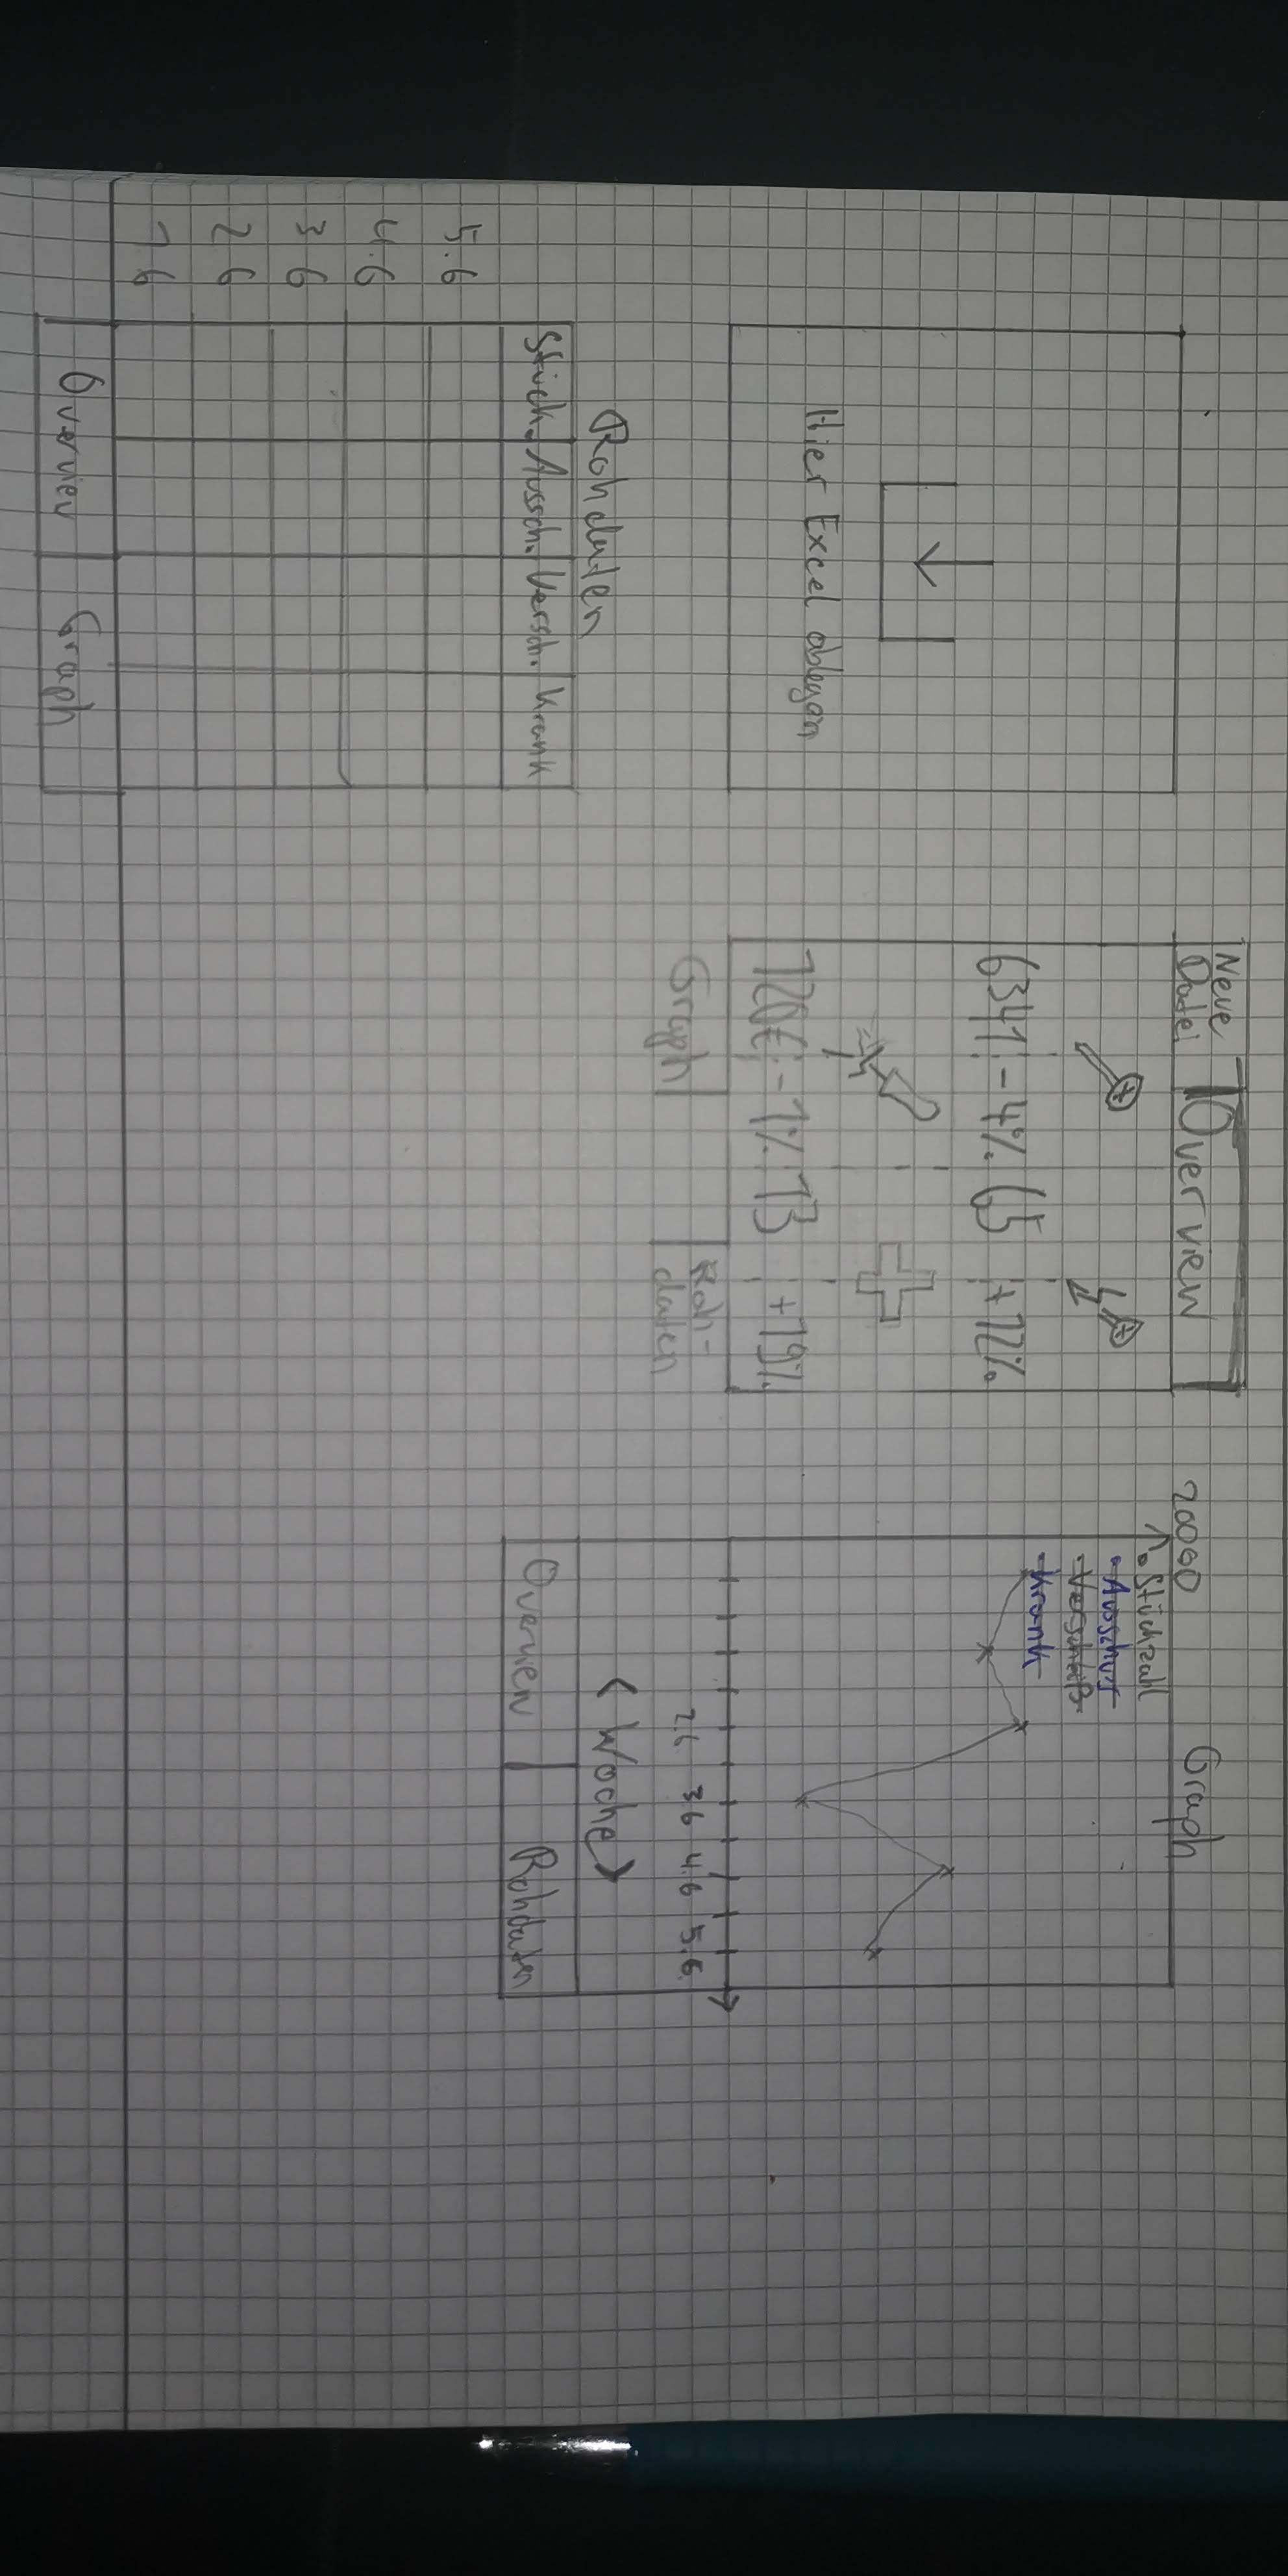 Hier Excel ablegen
Neue
Datei
Overview
6341 -4% 65 +12%
120€ -1% 13 +19%
Graph
Roh-
daten
20000
Graph
Stückzahl
Ausschuss
Verschleiß
Krank
2.6 3.6 4.6 5.6
< Woche >
Overview Rohdaten
Rohdaten
Stück. Aussch. Versch. Krank
5.6
4.6
3 6
2 6
1 6
Overview Graph